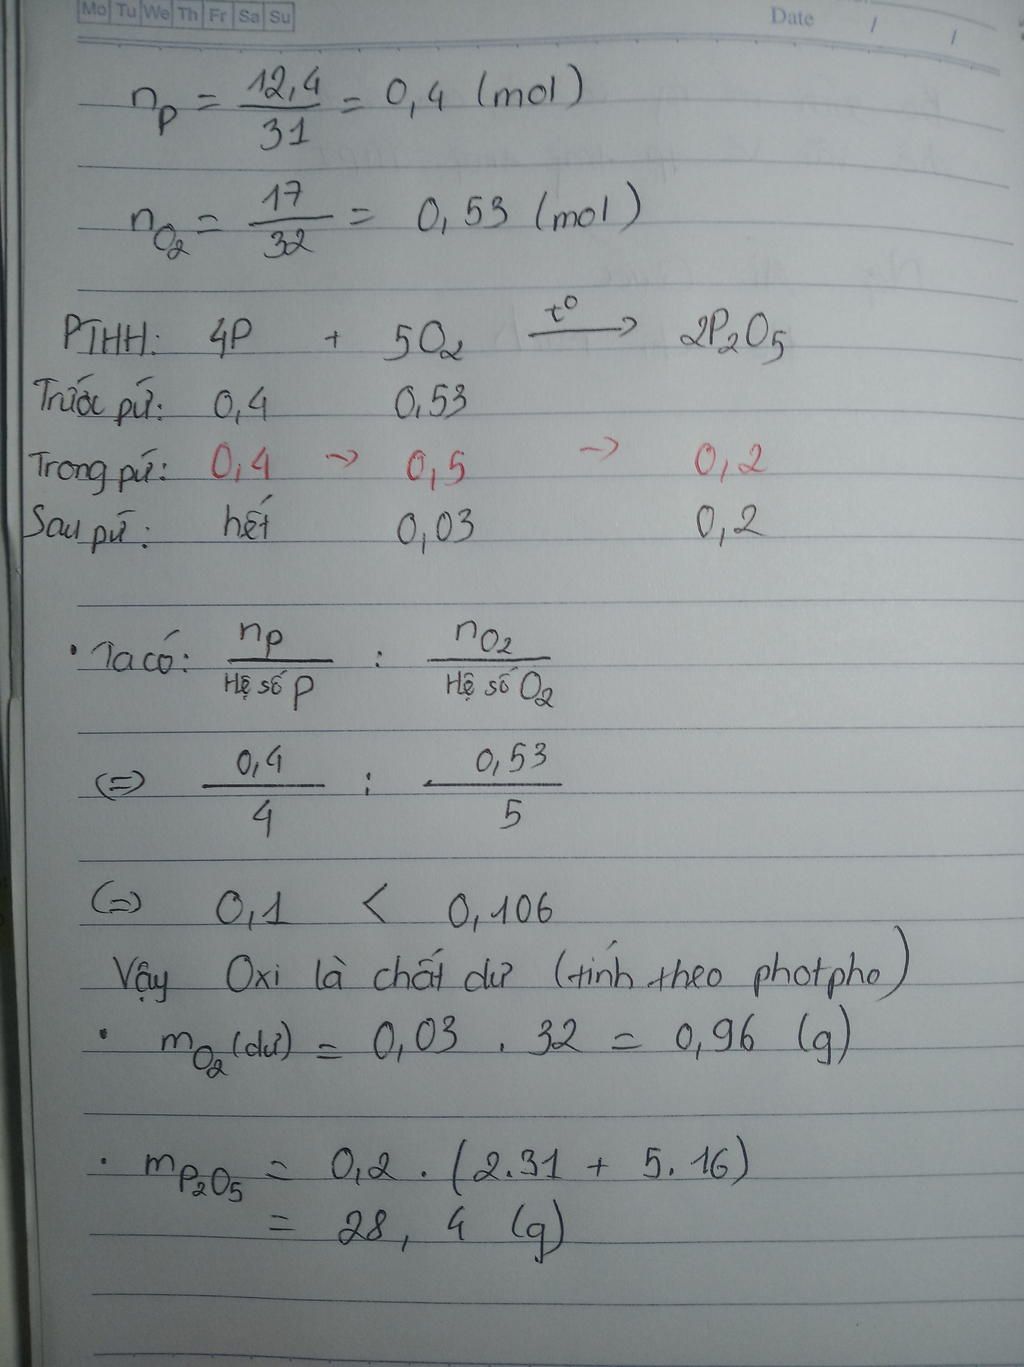 Mo Tu We Th Fr Sa Su
Date / /
nP = 12,4/31 = 0,4 (mol)
nO2 = 17/32 = 0,53 (mol)
PTHH: 4P + 5O2 t° → 2P2O5
Trước pứ: 0,4 0,53
Trong pứ: 0,4 → 0,5 → 0,2
Sau pứ: hết 0,03 0,2
• Ta có: nP/Hệ số P : nO2/Hệ số O2
(=) 0,4/4 : 0,53/5
(=) 0,1 < 0,106
Vậy Oxi là chất dư (tính theo photpho)
• mO2 (dư) = 0,03 . 32 = 0,96 (g)
• mP2O5 = 0,2 . (2.31 + 5.16)
= 28,4 (g)